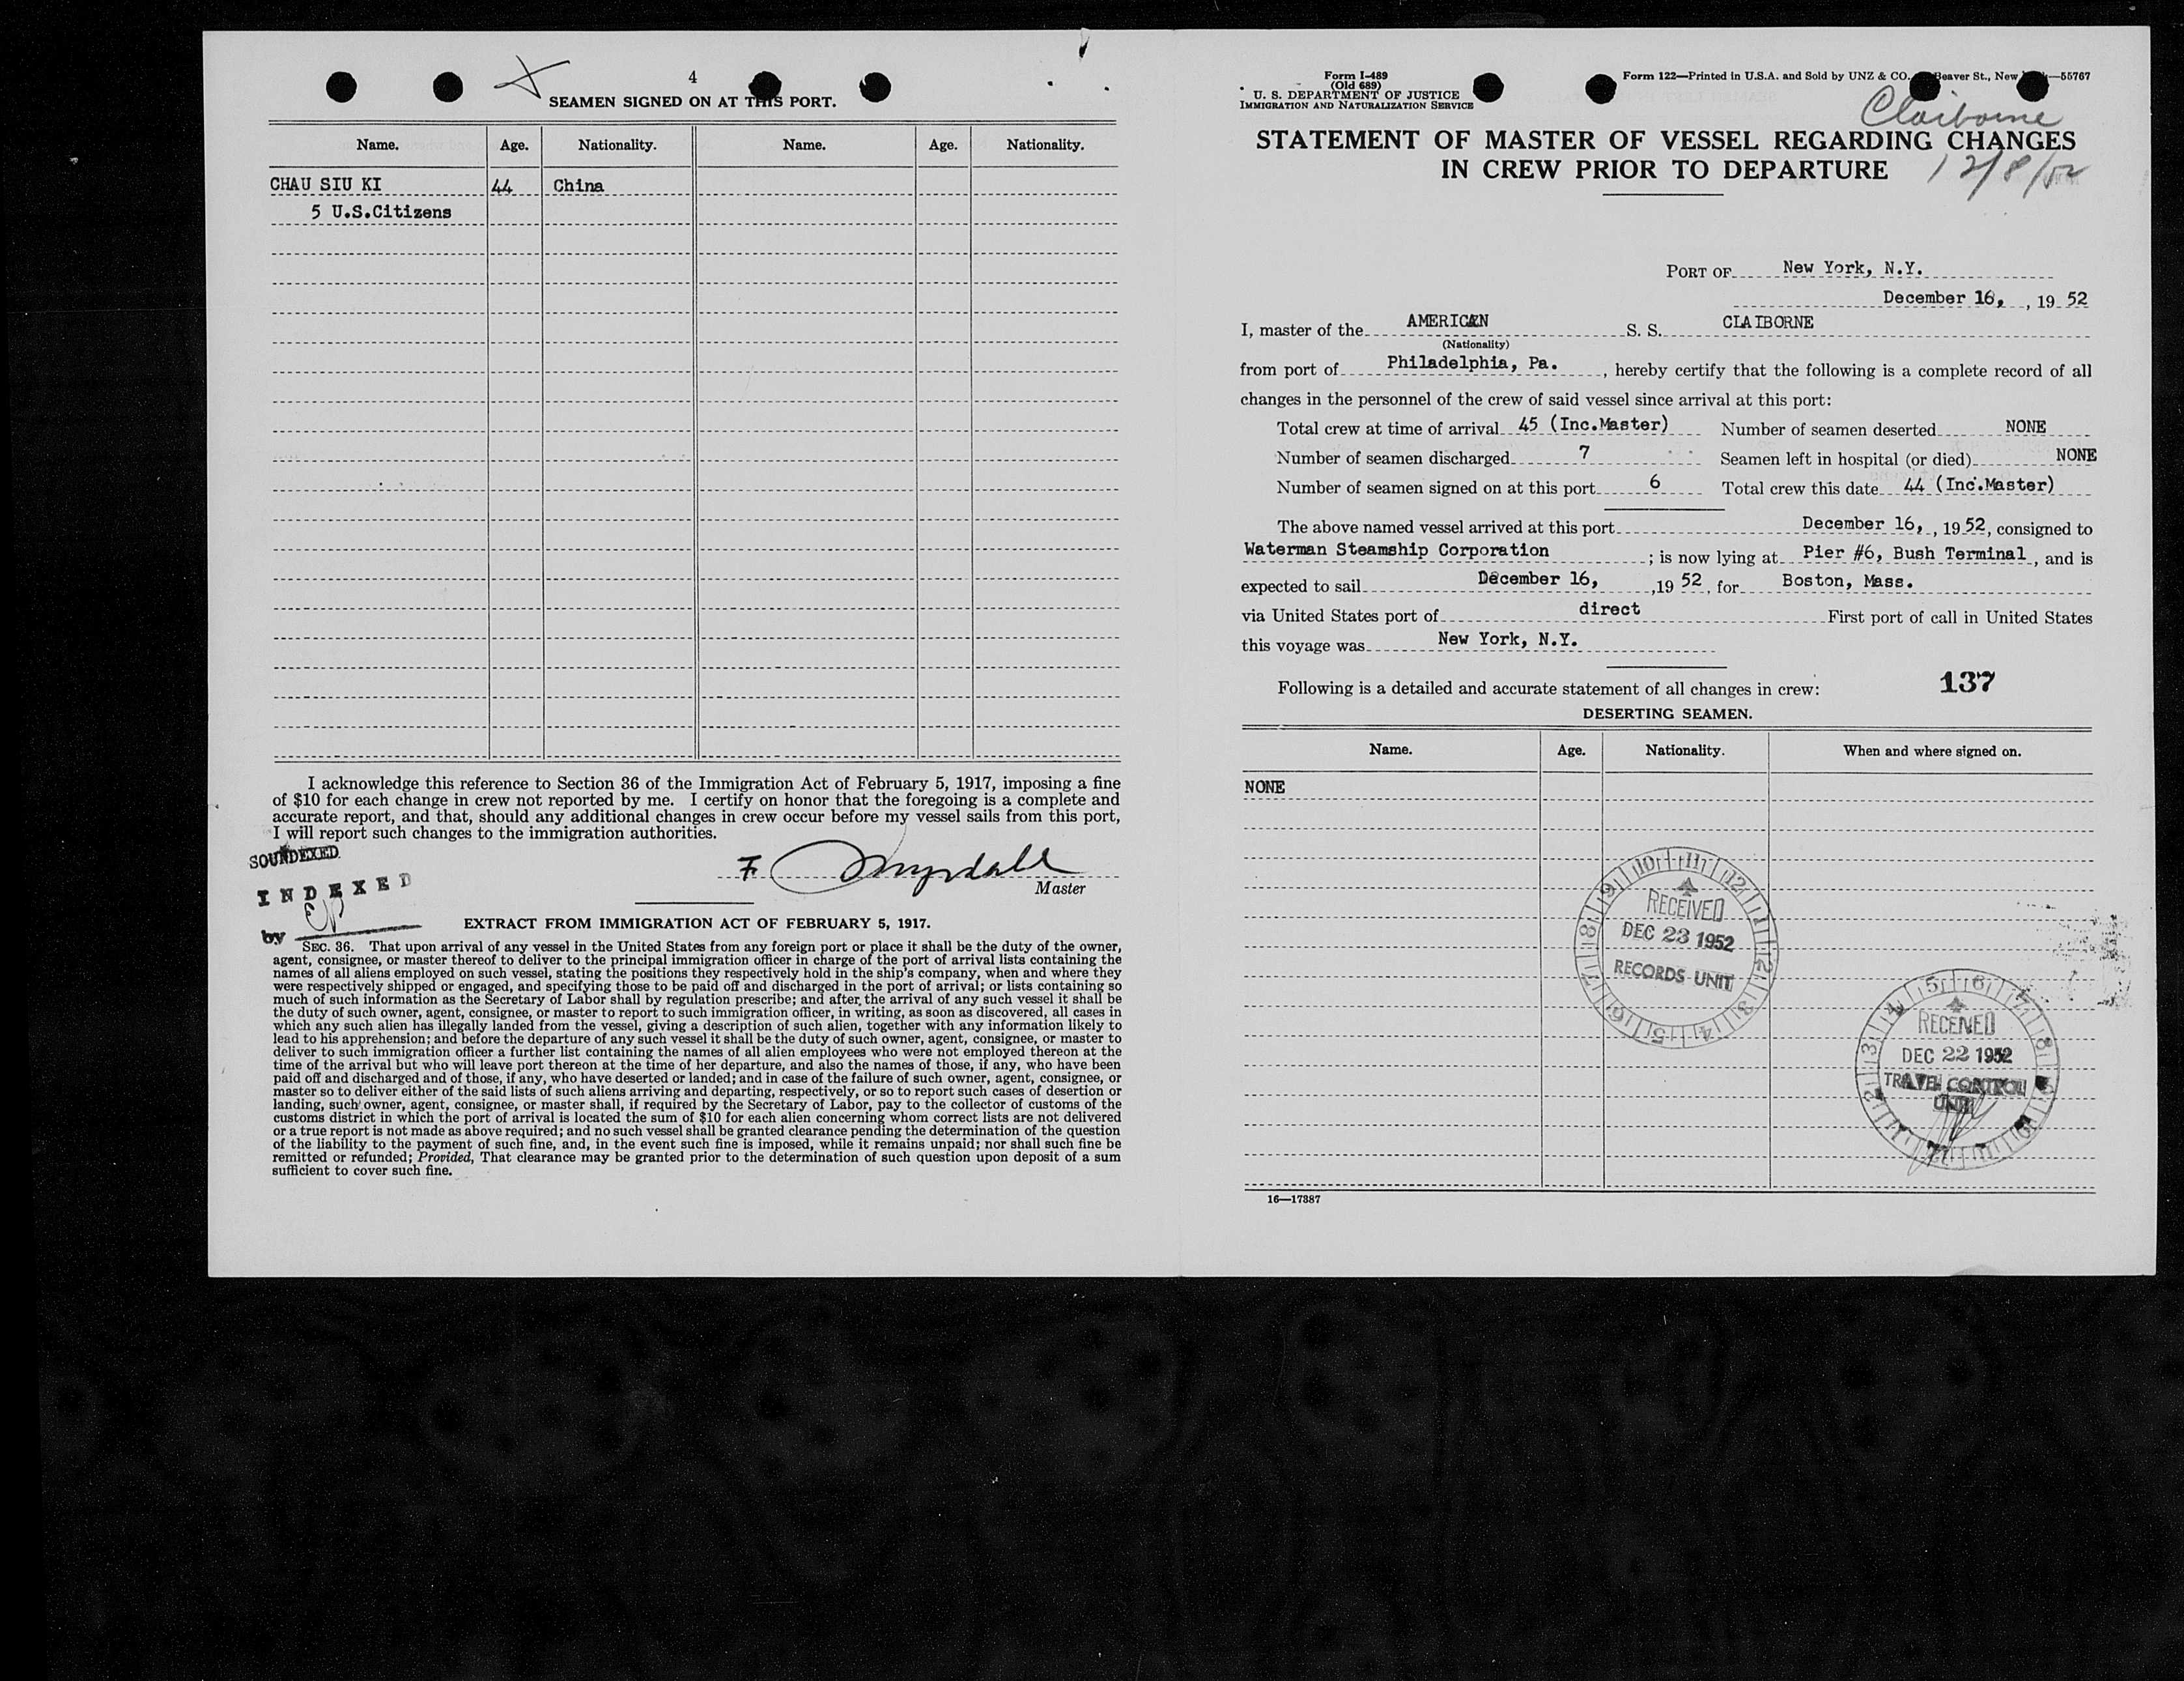 4
SEAMEN SIGNED ON AT THIS PORT.
Name. Age. Nationality. Name. Age. Nationality.
CHAU SIU KI 44 China
5 U.S.Citizens
I acknowledge this reference to Section 36 of the Immigration Act of February 5, 1917, imposing a fine
of $10 for each change in crew not reported by me. I certify on honor that the foregoing is a complete and
accurate report, and that, should any additional changes in crew occur before my vessel sails from this port,
I will report such changes to the immigration authorities.
SOUNDEXED
F.
Master
INDEXED
by
EXTRACT FROM IMMIGRATION ACT OF FEBRUARY 5, 1917.
SEC. 36. That upon arrival of any vessel in the United States from any foreign port or place it shall be the duty of the owner,
agent, consignee, or master thereof to deliver to the principal immigration officer in charge of the port of arrival lists containing the
names of all aliens employed on such vessel, stating the positions they respectively hold in the ship's company, when and where they
were respectively shipped or engaged, and specifying those to be paid off and discharged in the port of arrival; or lists containing so
much of such information as the Secretary of Labor shall by regulation prescribe; and after the arrival of any such vessel it shall be
the duty of such owner, agent, consignee, or master to report to such immigration officer, in writing, as soon as discovered, all cases in
which any such alien has illegally landed from the vessel, giving a description of such alien, together with any information likely to
lead to his apprehension; and before the departure of any such vessel it shall be the duty of such owner, agent, consignee, or master to
deliver to such immigration officer a further list containing the names of all alien employees who were not employed thereon at the
time of the arrival but who will leave port thereon at the time of her departure, and also the names of those, if any, who have been
paid off and discharged and of those, if any, who have deserted or landed; and in case of the failure of such owner, agent, consignee, or
master so to deliver either of the said lists of such aliens arriving and departing, respectively, or so to report such cases of desertion or
landing, such owner, agent, consignee, or master shall, if required by the Secretary of Labor, pay to the collector of customs of the
customs district in which the port of arrival is located the sum of $10 for each alien concerning whom correct lists are not delivered
or a true report is not made as above required; and no such vessel shall be granted clearance pending the determination of the question
of the liability to the payment of such fine, and, in the event such fine is imposed, while it remains unpaid; nor shall such fine be
remitted or refunded; Provided, That clearance may be granted prior to the determination of such question upon deposit of a sum
sufficient to cover such fine.
Form I-489
(Old 689)
U. S. DEPARTMENT OF JUSTICE
IMMIGRATION AND NATURALIZATION SERVICE
Form 122—Printed in U.S.A. and Sold by UNZ & CO. Beaver St., New —55767
Claiborne
STATEMENT OF MASTER OF VESSEL REGARDING CHANGES
IN CREW PRIOR TO DEPARTURE
12/8/52
PORT OF New York, N.Y.
December 16, , 19 52
I, master of the AMERICAN S. S. CLAIBORNE
(Nationality)
from port of Philadelphia, Pa. , hereby certify that the following is a complete record of all
changes in the personnel of the crew of said vessel since arrival at this port:
Total crew at time of arrival 45 (Inc.Master) Number of seamen deserted NONE
Number of seamen discharged 7 Seamen left in hospital (or died) NONE
Number of seamen signed on at this port 6 Total crew this date 44 (Inc.Master)
The above named vessel arrived at this port December 16, , 19 52, consigned to
Waterman Steamship Corporation ; is now lying at Pier #6, Bush Terminal , and is
expected to sail December 16, ,19 52, for Boston, Mass.
via United States port of direct First port of call in United States
this voyage was New York, N.Y.
Following is a detailed and accurate statement of all changes in crew: 137
DESERTING SEAMEN.
Name. Age. Nationality. When and where signed on.
NONE
RECEIVED
DEC 23 1952
RECORDS UNIT
RECEIVED
DEC 22 1952
TRAVEL CONTROL
UNIT
16—17387